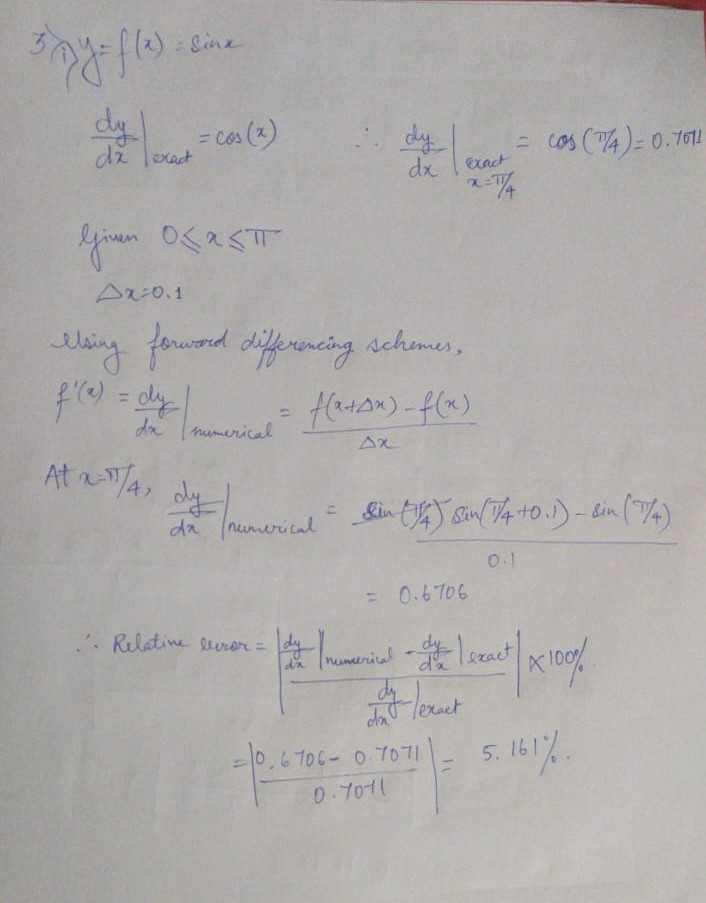 3) i) y = f(x) = sinx
dy/dx |exact = cos(x) ∴ dy/dx |exact x=π/4 = cos(π/4) = 0.7071
Given 0 ≤ x ≤ π
Δx = 0.1
Using forward differencing schemes,
f'(x) = dy/dx |numerical = f(x+Δx) - f(x) / Δx
At x = π/4, dy/dx |numerical = sin(π/4) sin(π/4 + 0.1) - sin(π/4) / 0.1
= 0.6706
∴ Relative error = | dy/dx |numerical - dy/dx |exact / dy/dx |exact | × 100%
= | 0.6706 - 0.7071 / 0.7071 | = 5.161%.